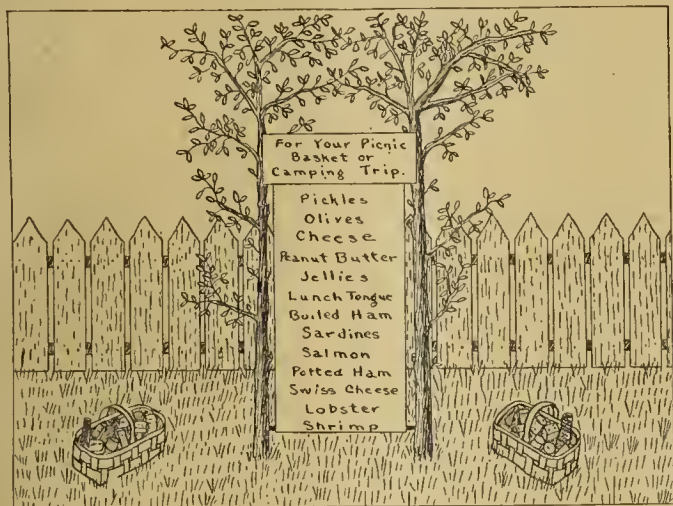 For Your Picnic
Basket or
Camping Trip.
Pickles
Olives
Cheese
Peanut Butter
Jellies
Lunch Tongue
Boiled Ham
Sardines
Salmon
Potted Ham
Swiss Cheese
Lobster
Shrimp